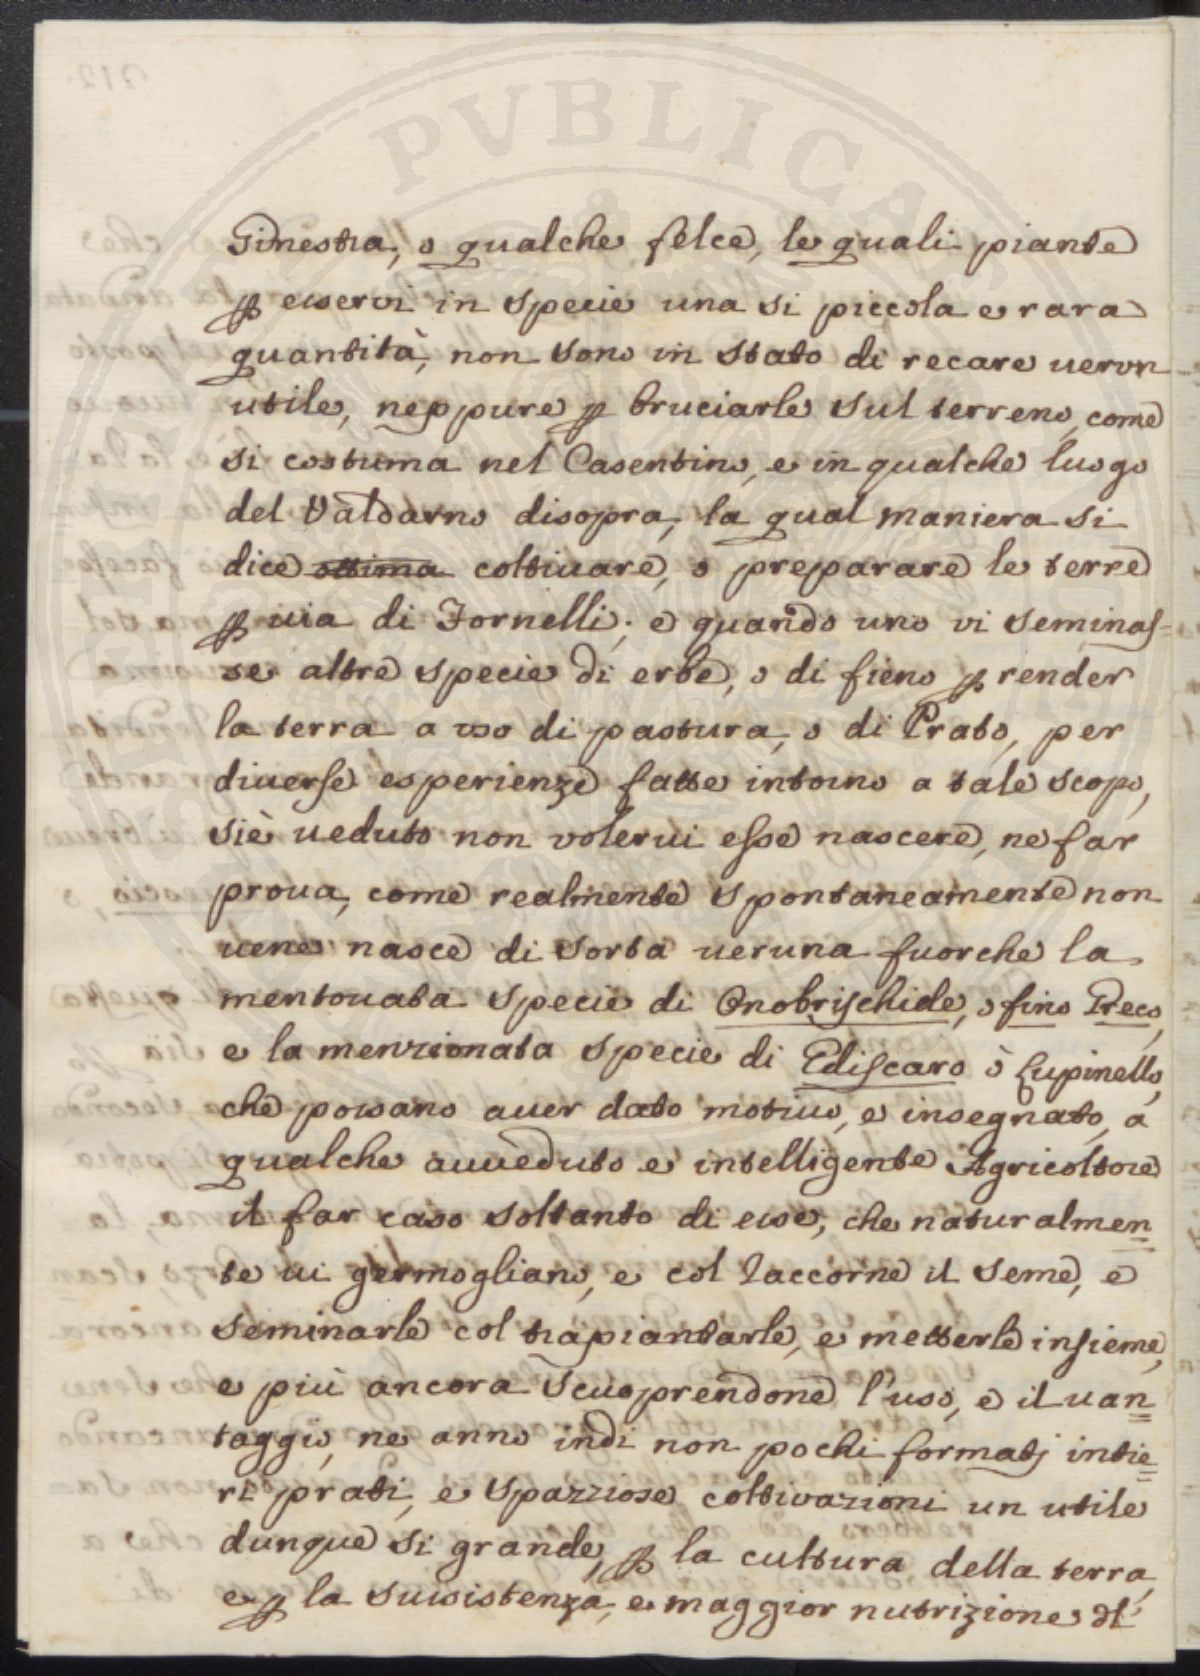 Ginestra, o qualche felce, le quali piante
ꝑ esservi in specie una si piccola e rara
quantità, non sono in stato di recare verun
utile, neppure ꝑ bruciarle sul terreno, come
si costuma nel Casentino, e in qualche luogo
del Valdarno disopra, la qual maniera si
dice ottima coltivare, o preparare le terre
ꝑ via di Fornelli; e quando uno vi seminas=
se altre specie di erbe, o di fieno ꝑ render
la terra a uso di pastura, o di Prato, per
diverse esperienze fatte intorno a tale scopo,
siè veduto non volervi esse nascere, ne far
prova, come realmente spontaneamente non
vene nasce di sorta veruna fuorche la
mentovata specie di Onobrischide, o fino Greco,
e la menzionata specie di Ediscaro ò Lupinello,
che possano aver dato motivo, e insegnato, a
qualche avveduto e intelligente Agricoltore
il far caso soltanto di esse, che naturalmen=
te vi germogliano, e col raccorne il seme, e
seminarle col trapiantarle, e metterle insieme,
e più ancora scuoprendone l'uso, e il van=
taggio, ne anno indi non pochi formatj intie=
ri prati, e spazziose coltivazioni un utile
dunque si grande, ꝑ la cultura della terra,
e ꝑ la sussistenza, e maggior nutrizione dl'
PVBLICAE